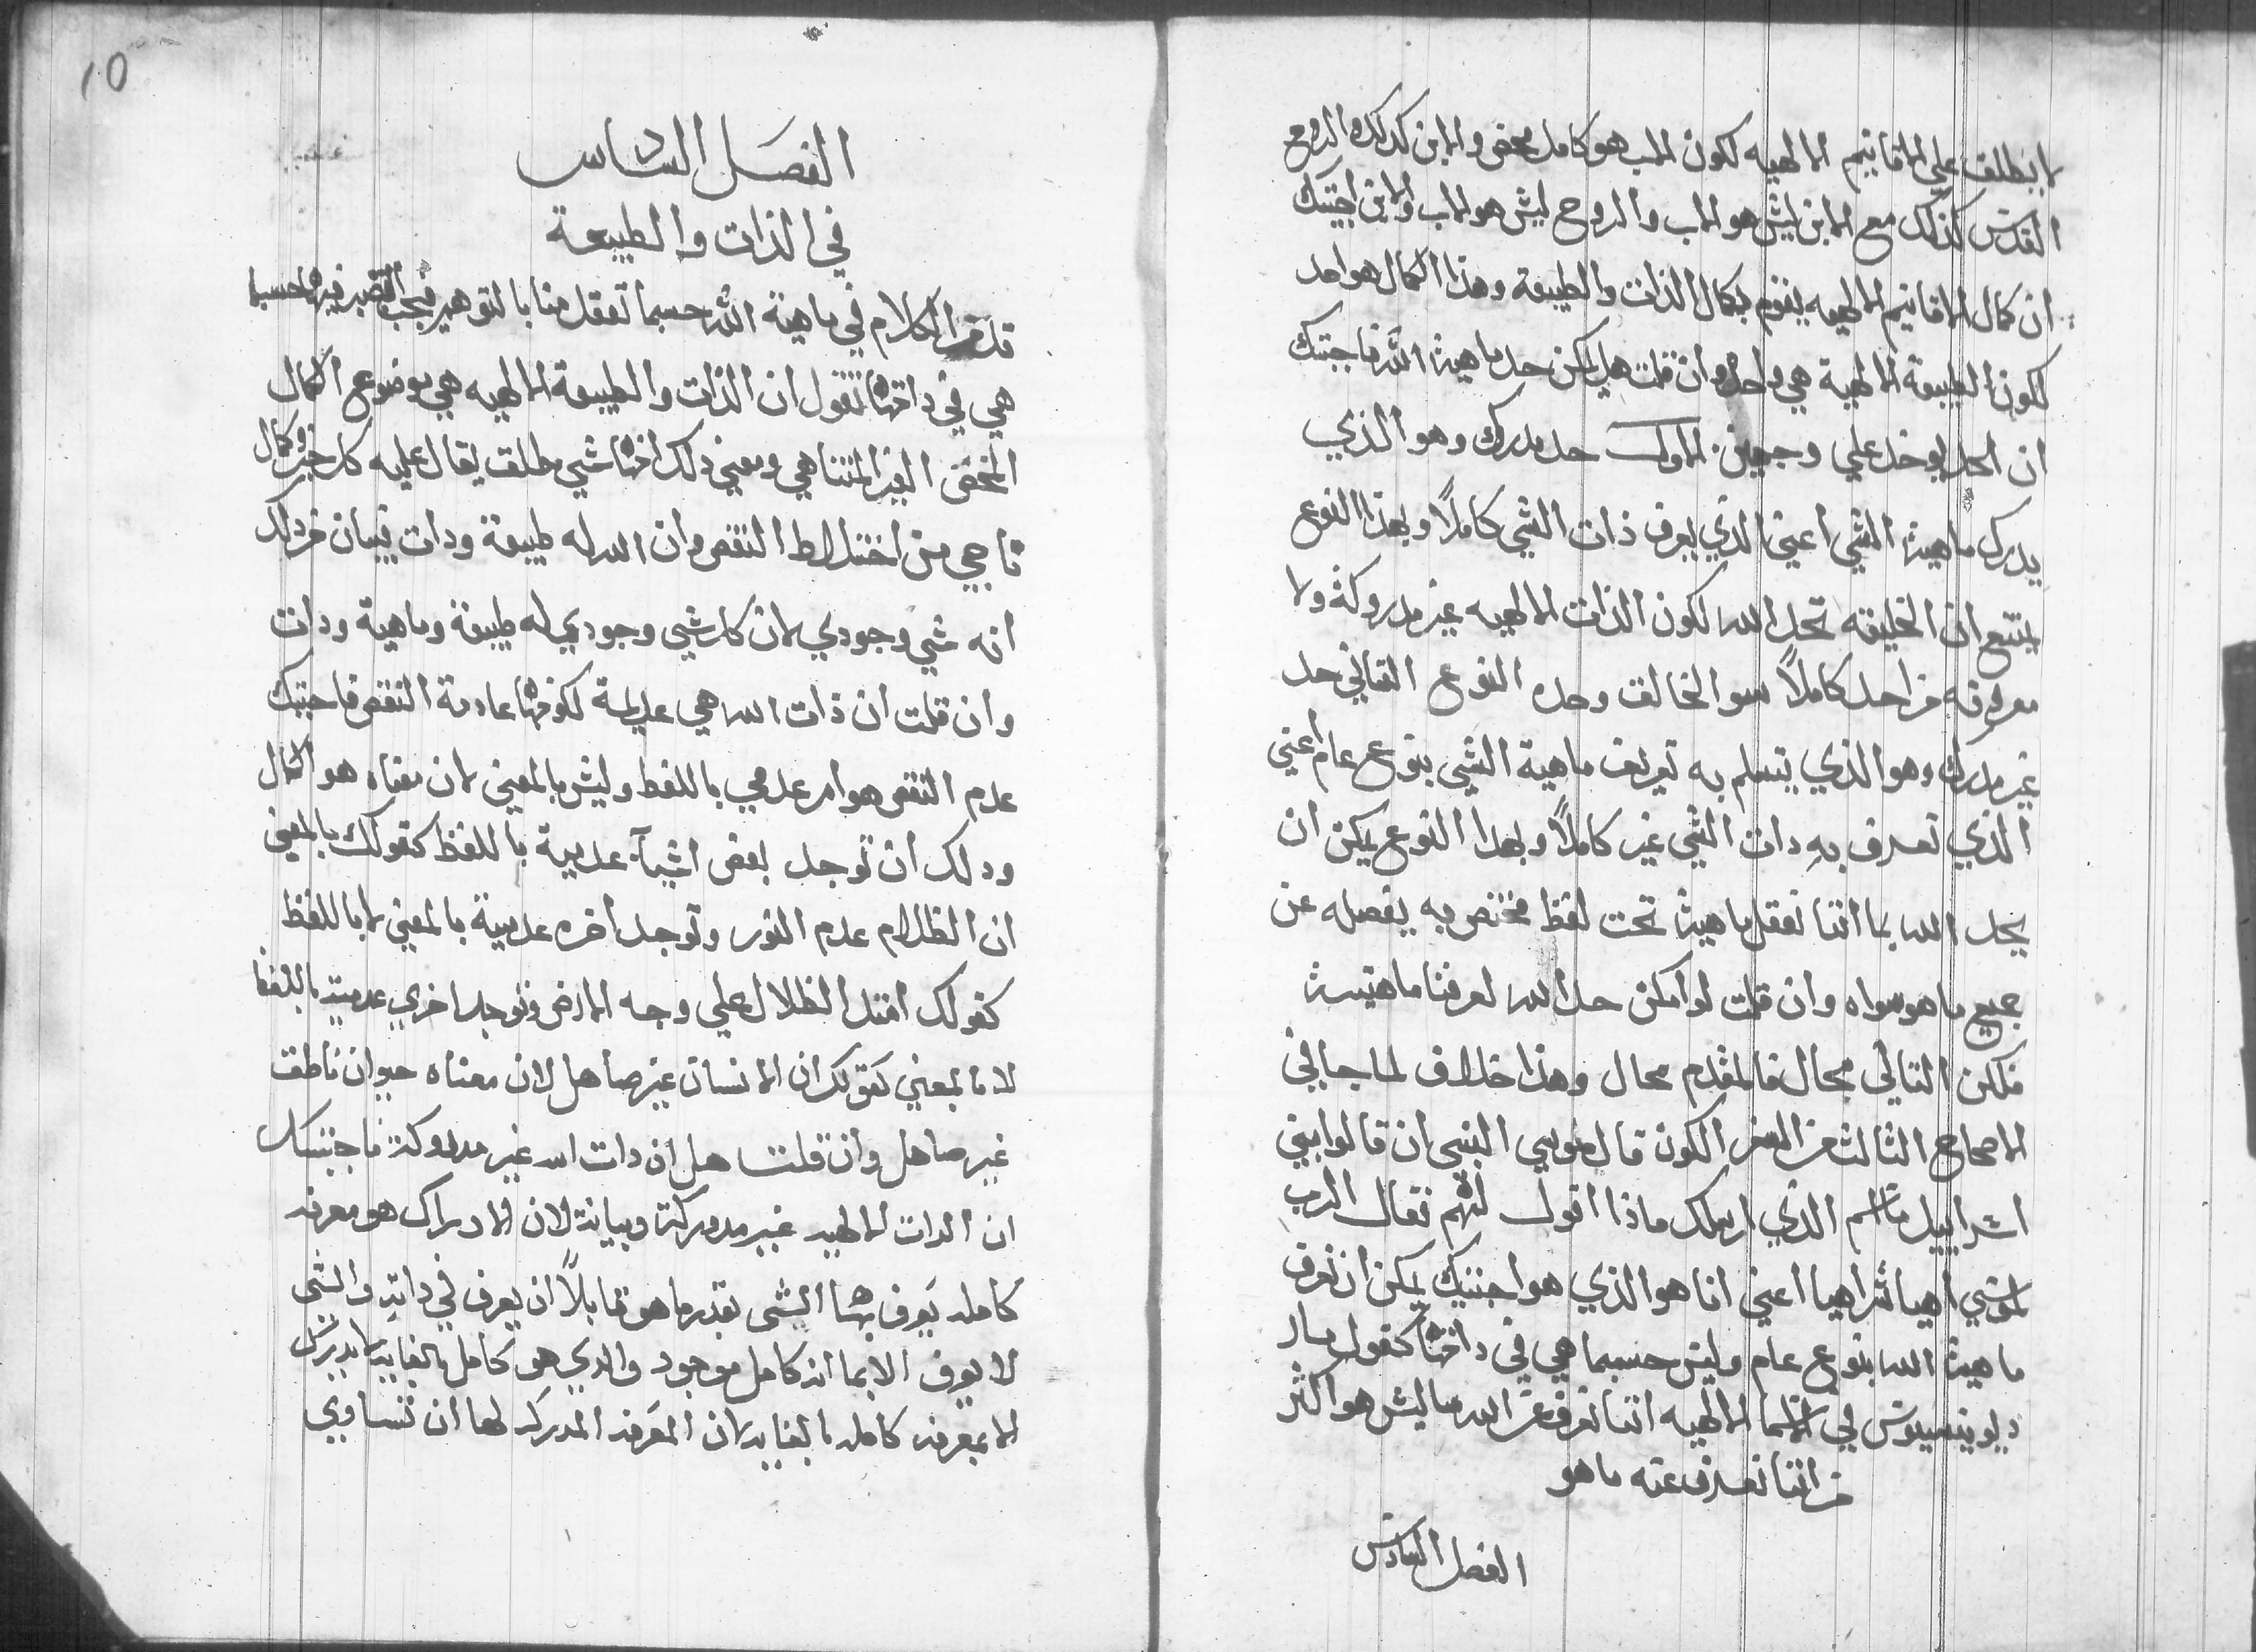 لا ينطلق علي الاقانيم الالهيه لكون الاب هو كامل محض والابن كدلك والروح
القدس كذلك مع الابن ليش هو الاب والروح ليش هو الاب والابن اجيتك
ان كمال الاقانيم الالهيه يقوم بكمال الذات والطبيعة وهذا الكمال هو احد
لكون الطبيعة الالهية هي واحدة وان قلت هل يمكن حد ماهية الله فاجيتك
ان الحد يوخد علي وجهين الاول حد مدرك وهو الذي
يدرك ماهية الشي اعني الذي يعرف ذات الشي كاملاً وبهذا النوع
يمتنع ان الخليقه تحد الله لكون الذات الالهيه غير مدروكة ولا
معروفه من احد كاملاً سوا الخالق وحده النوع الثاني حد
غير مدرك وهو الذي يتسلم به تعريف ماهية الشي بنوع عام اعني
الذي تعرف به دات الشي غير كاملاً وبهدا النوع يمكن ان
يحد الله بما اننا نعقل ماهيته تحت لفظ مختص به يفصله عن
جميع ما هو سواه وان قلت لو امكن حد الله لعرفنا ماهيته
فلكن التالي محال فالمقدم محال وهذا خلاف لما جا في
الاصحاح الثالث من السفر الكون قال موسي النبي ان قالوا بني
اسراييل ما اسم الذي ارسلك ماذا اقول لهم فقال الرب
لموسي اهيا شراهيا اعني انا هو الذي هو اجيتك يمكن ان نعرف
ماهية الله بنوع عام وليس حسبما هي في داتها كقول مار
ديونيسيوس في الاسما الالهيه اننا نعرف عن الله ما ليش هو اكثر
من اننا نعرف عنه ما هو
الفصل السادس
10
الفصل السادس
في الذات والطبيعة
قد مر الكلام في ماهية الله حسبما تعقل منا بالتوهير فيجب التفسير فيها حسبما
هي في داتها فنقول ان الذات والطبيعة الالهيه هي موضوع الكمال
المحض الغير المتناهي ومعني دلك انها شي مطلق يقال عليه كل خير وكمال
ناجي من اختلاط النقص وان الله له طبيعة ودات فيبان من ذلك
انه شي وجودي لان كل شي وجودي له طبيعة وماهية ودات
وان قلت ان ذات الله هي عديمة لكونها عادمة النقص فاجيتك
عدم النقص هو امر عدمي باللفظ وليش بالمعني لان معناه هو الكمال
ودلك ان توجد بعض اشيآ عدمية باللفظ كقولك بالمعني
ان الظلام عدم النور وتوجد اخره عدمية بالمعني لا باللفظ
كقولك امتد الظلال علي وجه الارض وتوجد اخري عدمية باللفظ
لا بالمعني كقولك ان الانسان غير صاهل لان معناه حيوان ناطق
غير صاهل وان قلت هل ان دات الله غير مدروكة فاجيتك
ان الدات الالهيه غير مدروكة وبيانه لان الادراك هو معرفه
كامله يعرف بها الشي بقدر ما هو قابلاً ان يعرف في داته والشي
لا يعرف الا بما انه كامل موجود والدي هو كامل بالغايه لا يدرك
الا بمعرفه كامله بالغايه لان المعرفه المدركه لها ان تتساوي